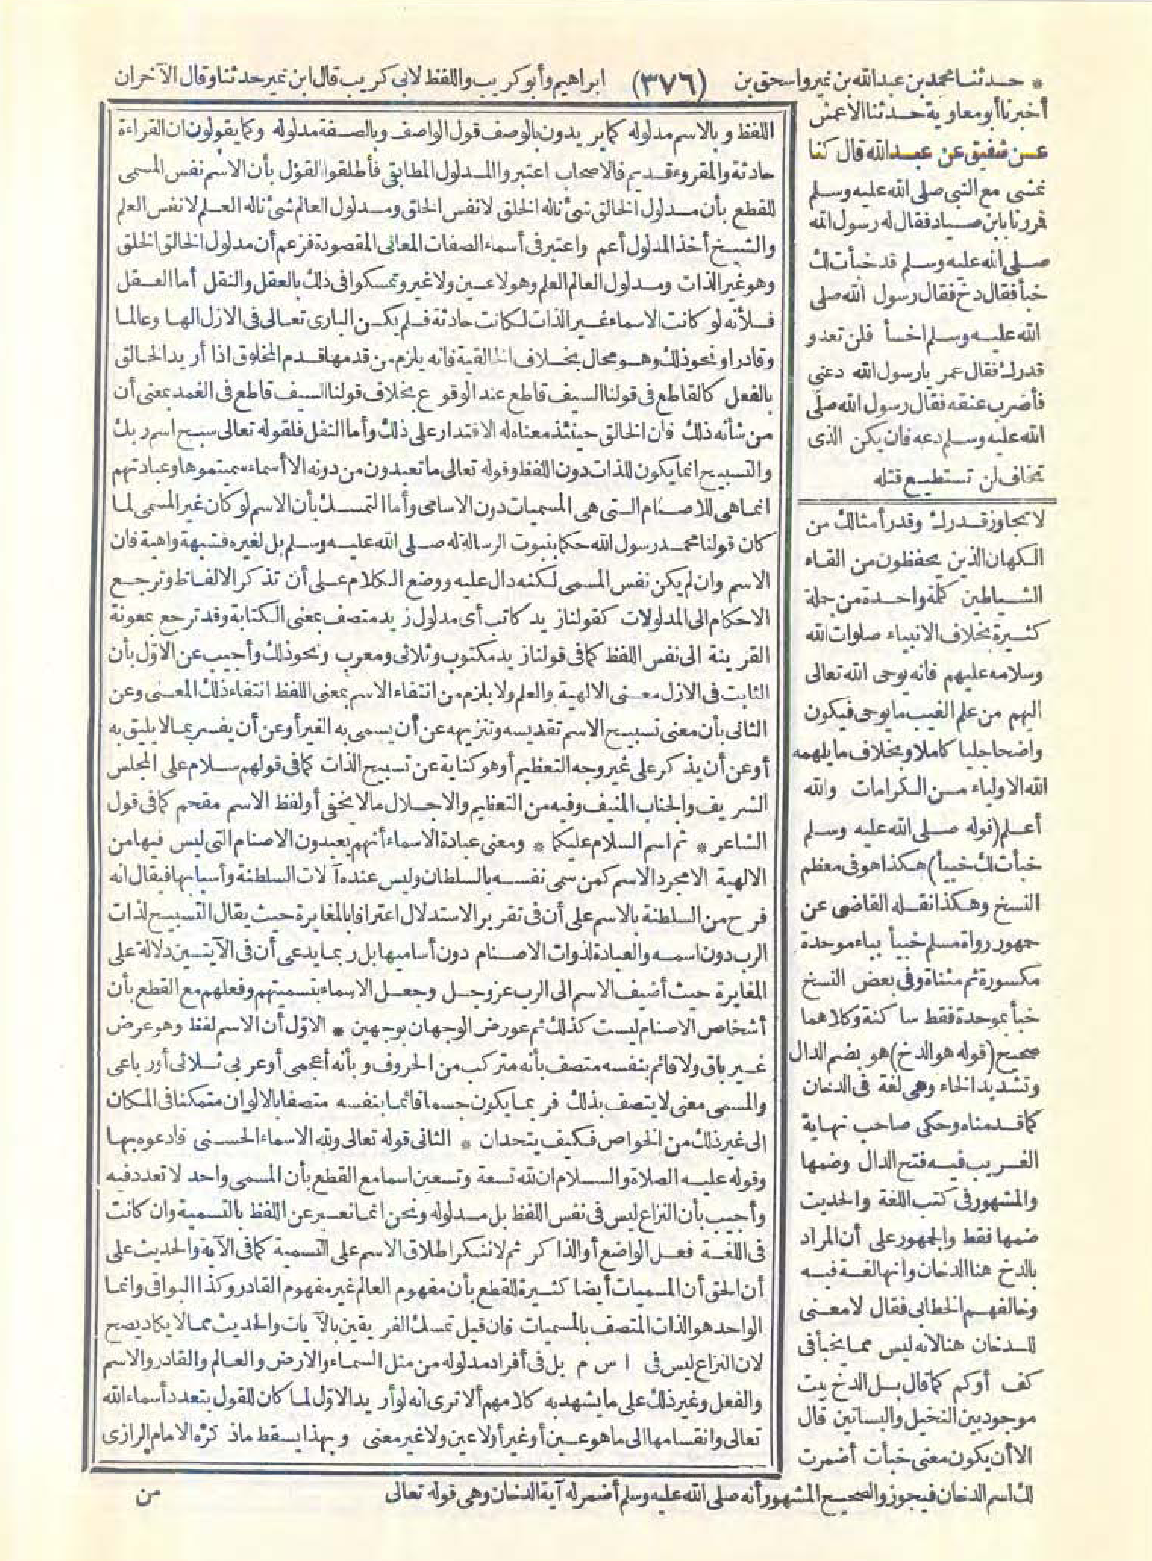 * حدثنا محمد بن عبدالله بن نمير واسحق بن (٣٧٦) ابراهيم وأبو كريب واللفظ لابي كريب قال ابن نمير حدثنا وقال الآخران
أخبرنا أبو معاوية حدثنا الاعمش
عن شقيق عن عبدالله قال كنا
نمشي مع النبي صلى الله عليه وسلم
فمررنا بابن صياد فقال له رسول الله
صلى الله عليه وسلم قد خبأت لك
خبأ فقال دخ فقال رسول الله صلى
الله عليه وسلم اخسأ فلن تعدو
قدرك فقال عمر يا رسول الله دعني
فأضرب عنقه فقال رسول الله صلى
الله عليه وسلم دعه فان يكن الذى
تخاف لن تستطيع قتله
لا تجاوز قدرك وقدر أمثالك من
الكهان الذين يحفظون من القاء
الشياطين كلمة واحدة من جملة
كثيرة بخلاف الانبياء صلوات الله
وسلامه عليهم فانه يوحى الله تعالى
اليهم من علم الغيب ما يوحى فيكون
واضحا جليا كاملا وبخلاف ما يلهمه
الله الاولياء من الكرامات والله
أعلم (قوله صلى الله عليه وسلم
خبأت لك خبيأ) هكذا هو فى معظم
النسخ وهكذا نقله القاضى عن
جمهور رواة مسلم خبيأ بباء موحدة
مكسورة ثم مثناة وفى بعض النسخ
خبأ بموحدة فقط ساكنة وكلاهما
صحيح (قوله هو الدخ) هو بضم الدال
وتشديد الخاء وهى لغة فى الدخان
كما قدمناه وحكى صاحب نهاية
الغريب فيه فتح الدال وضمها
والمشهور فى كتب اللغة والحديث
ضمها فقط والجمهور على أن المراد
بالدخ هنا الدخان وانها لغة فيه
وخالفهم الخطابى فقال لا معنى
للدخان هنا لانه ليس مما يخبأ فى
كف أو كم كما قال بل الدخ بيت
موجود بين النخيل والبساتين قال
الا أن يكون معنى خبأت أضمرت
لك اسم الدخان فيجوز والصحيح المشهور أنه صلى الله عليه وسلم أضمر له آية الدخان وهى قوله تعالى
اللفظ وبالاسم مدلوله كما يريدون بالوصف قول الواصف وبالصفة مدلوله وكما يقولون ان القراءة
حادثة والمقروء قديم فالاصحاب اعتبروا المدلول المطابقى فأطلقوا القول بأن الاسم نفس المسمى
للقطع بأن مدلول الخالق شئ ماله الخلق لا نفس الخلق ومدلول العالم شئ ماله العلم لا نفس العلم
والشيخ أخذ المدلول أعم واعتبر فى أسماء الصفات المعانى المقصودة فزعم أن مدلول الخالق الخلق
وهو غير الذات ومدلول العالم العلم وهو لا عين ولا غير وتمسكوا فى ذلك بالعقل والنقل أما العقل
فلأنه لو كانت الاسماء غير الذات لكانت حادثة فلم يكن البارى تعالى فى الازل الها وعالما
وقادرا ونحو ذلك وهو محال بخلاف الخالقية فانه يلزم من قدمها قدم المخلوق اذا أريد الخالق
بالفعل كالقاطع فى قولنا السيف قاطع عند الوقوع بخلاف قولنا السيف قاطع فى الغمد بمعنى أن
من شأنه ذلك فان الخالق حينئذ معناه له الاقتدار على ذلك وأما النقل فلقوله تعالى سبح اسم ربك
والتسبيح انما يكون للذات دون اللفظ وقوله تعالى ما تعبدون من دونه الا أسماء سميتموها وعبادتهم
انما هى للاصنام التى هى المسميات دون الاسامى وأما التمسك بأن الاسم لو كان غير المسمى لما
كان قولنا محمد رسول الله حكما بثبوت الرسالة له صلى الله عليه وسلم بل لغيره فشبهة واهية فان
الاسم وان لم يكن نفس المسمى لكنه دال عليه ووضع الكلام على أن تذكر الالفاظ وترجع
الاحكام الى المدلولات كقولنا زيد كاتب أى مدلول زيد متصف بمعنى الكتابة وقد ترجع بمعونة
القرينة الى نفس اللفظ كما فى قولنا زيد مكتوب وثلاثى ومعرب ونحو ذلك وأجيب عن الاول بأن
الثابت فى الازل معنى الالهية والعلم ولا يلزم من انتفاء الاسم بمعنى اللفظ انتفاء ذلك المعنى وعن
الثانى بأن معنى تسبيح الاسم تقديسه وتنزيهه عن أن يسمى به الغير أو عن أن يفسر بما لا يليق به
أو عن أن يذكر على غير وجه التعظيم أو هو كناية عن تسبيح الذات كما فى قولهم سلام على المجلس
الشريف والجناب المنيف وفيه من التعظيم والاجلال ما لا يخفى أو لفظ الاسم مقحم كما فى قول
الشاعر * ثم اسم السلام عليكما * ومعنى عبادة الاسماء أنهم يعبدون الاصنام التى ليس فيها من
الالهية الا مجرد الاسم كمن سمى نفسه بالسلطان وليس عنده آلات السلطنة وأسبابها فيقال انه
فرح من السلطنة بالاسم على أن فى تقرير الاستدلال اعترافا بالمغايرة حيث يقال التسبيح لذات
الرب دون اسمه والعبادة لذوات الاصنام دون أساميها بل ربما يدعى أن فى الآيتين دلالة على
المغايرة حيث أضيف الاسم الى الرب عز وجل وجعل الاسماء بتسميتهم وفعلهم مع القطع بأن
أشخاص الاصنام ليست كذلك ثم عورض الوجهان بوجهين * الاول أن الاسم لفظ وهو عرض
غير باق ولا قائم بنفسه متصف بأنه متركب من الحروف وبأنه أعجمى أو عربى ثلاثى أو رباعى
والمسمى معنى لا يتصف بذلك فربما يكون جسما قائما بنفسه متصفا بالالوان متمكنا فى المكان
الى غير ذلك من الخواص فكيف يتحدان * الثانى قوله تعالى ولله الاسماء الحسنى فادعوه بها
وقوله عليه الصلاة والسلام ان لله تسعة وتسعين اسما مع القطع بأن المسمى واحد لا تعدد فيه
وأجيب بأن النزاع ليس فى نفس اللفظ بل مدلوله ونحن انما نعبر عن اللفظ بالتسمية وان كانت
فى اللغة فعل الواضع أو الذاكر ثم لا ننكر اطلاق الاسم على التسمية كما فى الآية والحديث على
أن الحق أن المسميات أيضا كثيرة للقطع بأن مفهوم العالم غير مفهوم القادر وكذا البواقى وانما
الواحد هو الذات المتصف بالمسميات فان قيل تمسك الفريقين بالآيات والحديث مما لا يكاد يصح
لان النزاع ليس فى ا س م بل فى أفراد مدلوله من مثل السماء والارض والعالم والقادر والاسم
والفعل وغير ذلك على ما يشهد به كلامهم ألا ترى انه لو أريد الاول لما كان للقول بتعدد أسماء الله
تعالى وانقسامها الى ما هو عين أو غير أو لا عين ولا غير معنى وبهذا يسقط ما ذكره الامام الرازى
من